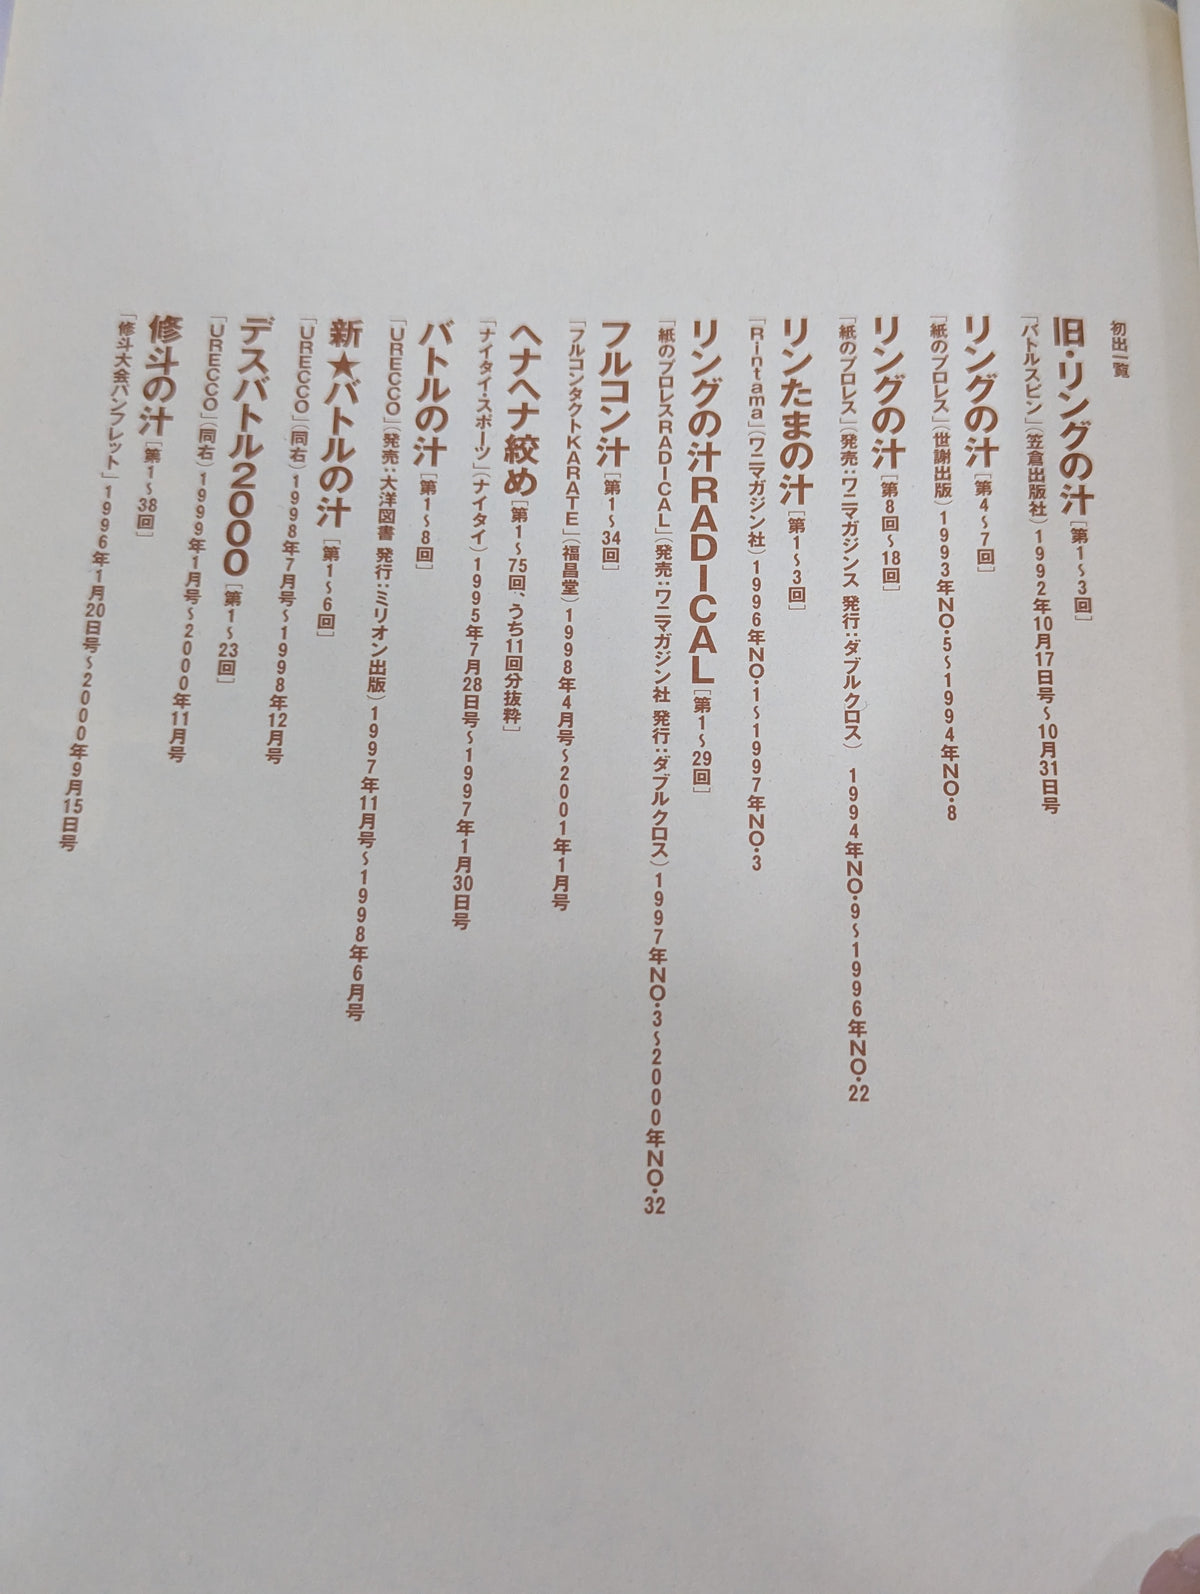 初出一覧
旧・リングの汁［第1〜3回］
「バトルスピン」（笠倉出版社）1992年10月17日号〜10月31日号
リングの汁［第4〜7回］
「紙のプロレス」（世謝出版）1993年NO.5〜1994年NO.8
リングの汁［第8回〜18回］
「紙のプロレス」（発売：ワニマガジンス 発行：ダブルクロス） 1994年NO.9〜1996年NO.22
リンたまの汁［第1〜3回］
「Rintama」（ワニマガジン社）1996年NO.1〜1997年NO.3
リングの汁RADICAL［第1〜29回］
「紙のプロレスRADICAL」（発売：ワニマガジン社 発行：ダブルクロス）1997年NO.3〜2000年NO.32
フルコン汁［第1〜34回］
「フルコンタクトKARATE」（福昌堂）1998年4月号〜2001年1月号
ヘナヘナ絞め［第1〜75回、うち11回分抜粋］
「ナイタイ・スポーツ」（ナイタイ）1995年7月28日号〜1997年1月30日号
バトルの汁［第1〜8回］
「URECCO」（発売：大洋図書 発行：ミリオン出版）1997年11月号〜1998年6月号
新★バトルの汁［第1〜6回］
「URECCO」（同右）1998年7月号〜1998年12月号
デスバトル2000［第1〜23回］
「URECCO」（同右）1999年1月号〜2000年11月号
修斗の汁［第1〜38回］
「修斗大会パンフレット」1996年1月20日号〜2000年9月15日号